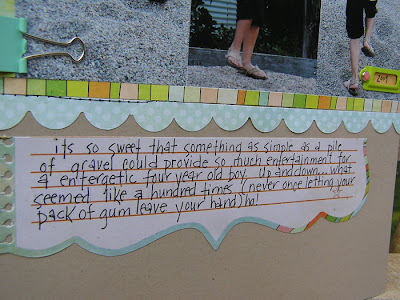 its so sweet that something as simple as a pile
of gravel could provide so much entertainment for
a entergetic four year old boy. Up and down... what
seemed like a hundred times (never once letting your
pack of gum leave your hand) ha!